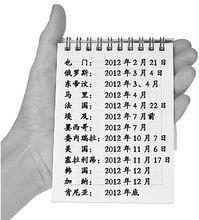 也 门： 2012 年 2 月 21 日
俄罗斯： 2012 年 3 月 4 日
东帝汶： 2012 年 3、4 月
马 里： 2012 年 4 月
法 国： 2012 年 4 月 22 日
埃 及： 2012 年 7 月前
墨西哥： 2012 年 7 月
委内瑞拉： 2012 年 10 月 7 日
美 国： 2012 年 11 月 6 日
塞拉利昂： 2012 年 11 月 17 日
韩 国： 2012 年 12 月
加 纳： 2012 年 12 月
肯尼亚： 2012 年底